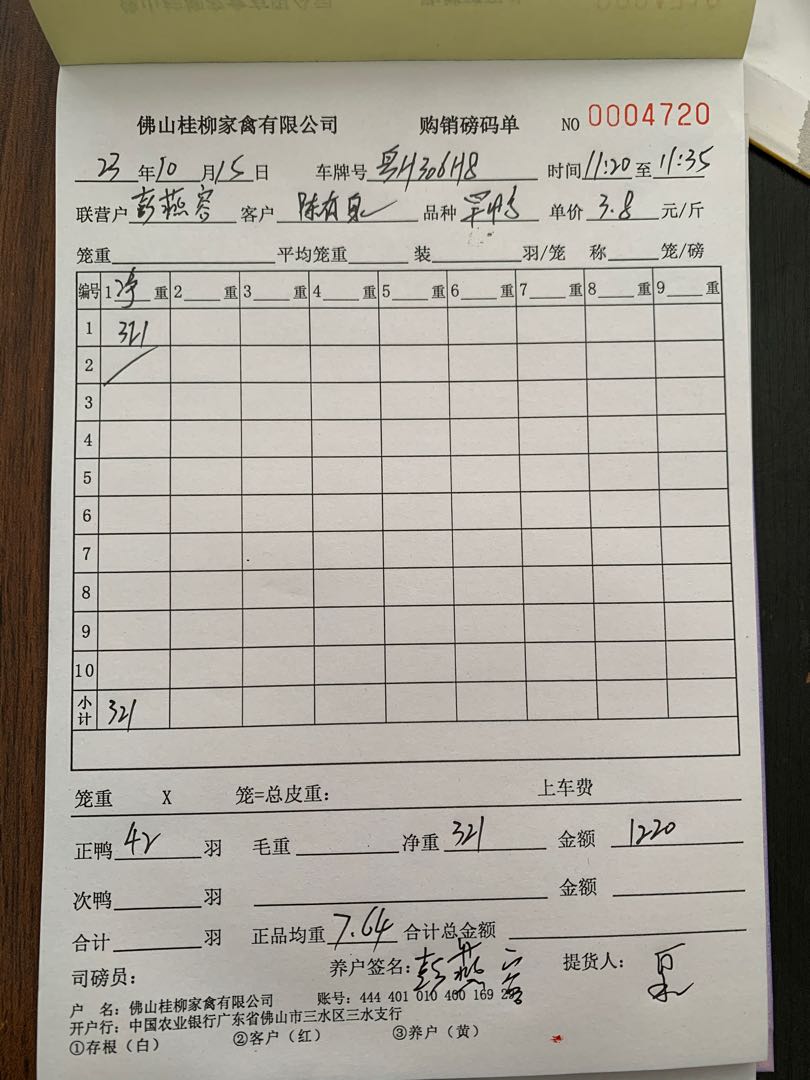 佛山桂柳家禽有限公司 购销磅码单 NO 0004720
23年10月15日 车牌号 粤H306H8 时间11:20至11:35
联营户彭燕容 客户 品种 单价 3.8 元/斤
笼重 平均笼重 装 羽/笼 称 笼/磅
编号 1净重 2重 3重 4重 5重 6重 7重 8重 9重
1 321
2
3
4
5
6
7
8
9
10
小计 321
笼重 X 笼=总皮重: 上车费
正鸭 42 羽 毛重 净重 321 金额 1220
次鸭 羽 金额
合计 羽 正品均重 7.64 合计总金额
司磅员: 养户签名:彭燕容 提货人:
户 名: 佛山桂柳家禽有限公司 账号: 444 401 010 400 169
开户行: 中国农业银行广东省佛山市三水区三水支行
①存根(白) ②客户(红) ③养户(黄)